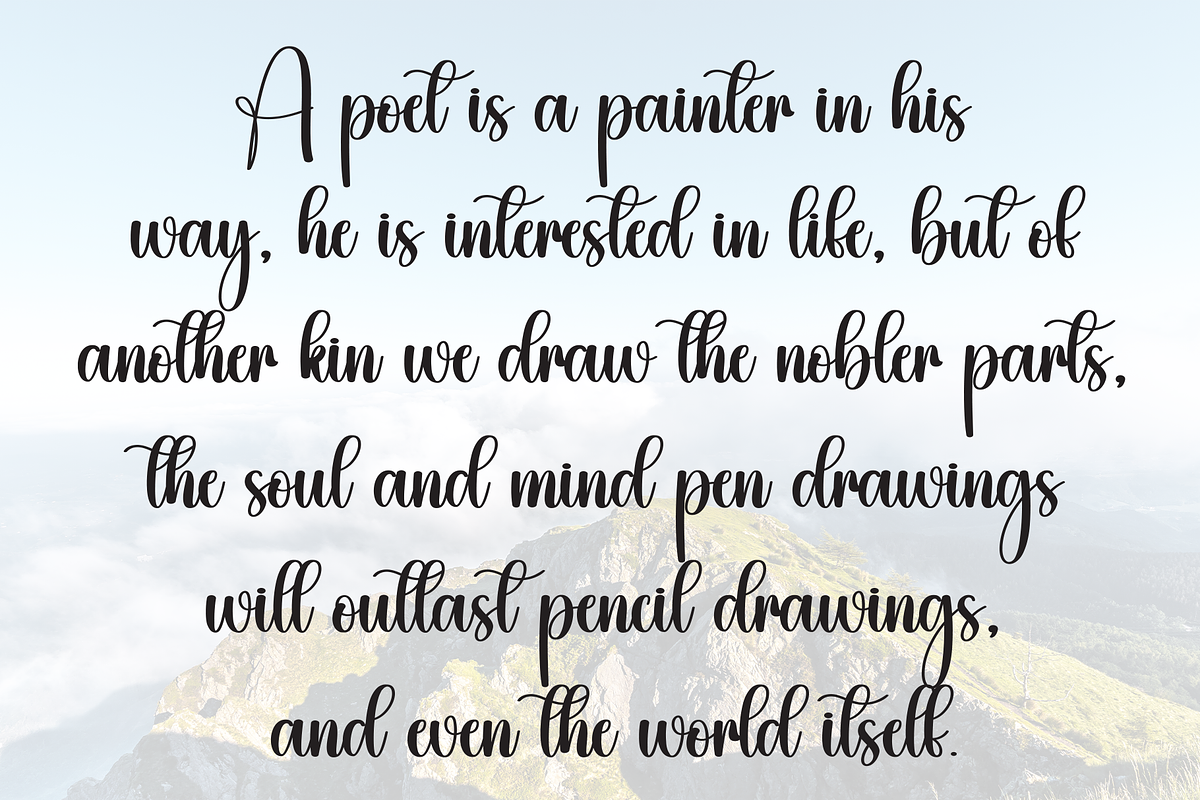 A poet is a painter in his
way, he is interested in life, but of
another kin we draw the nobler parts,
the soul and mind pen drawings
will outlast pencil drawings,
and even the world itself.